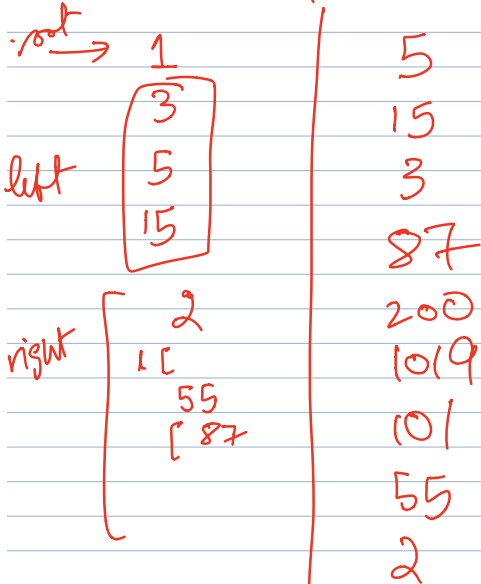 root → 1
3
left 5
15
2
right 1 [
55
[ 87
5
15
3
87
200
1019
101
55
2